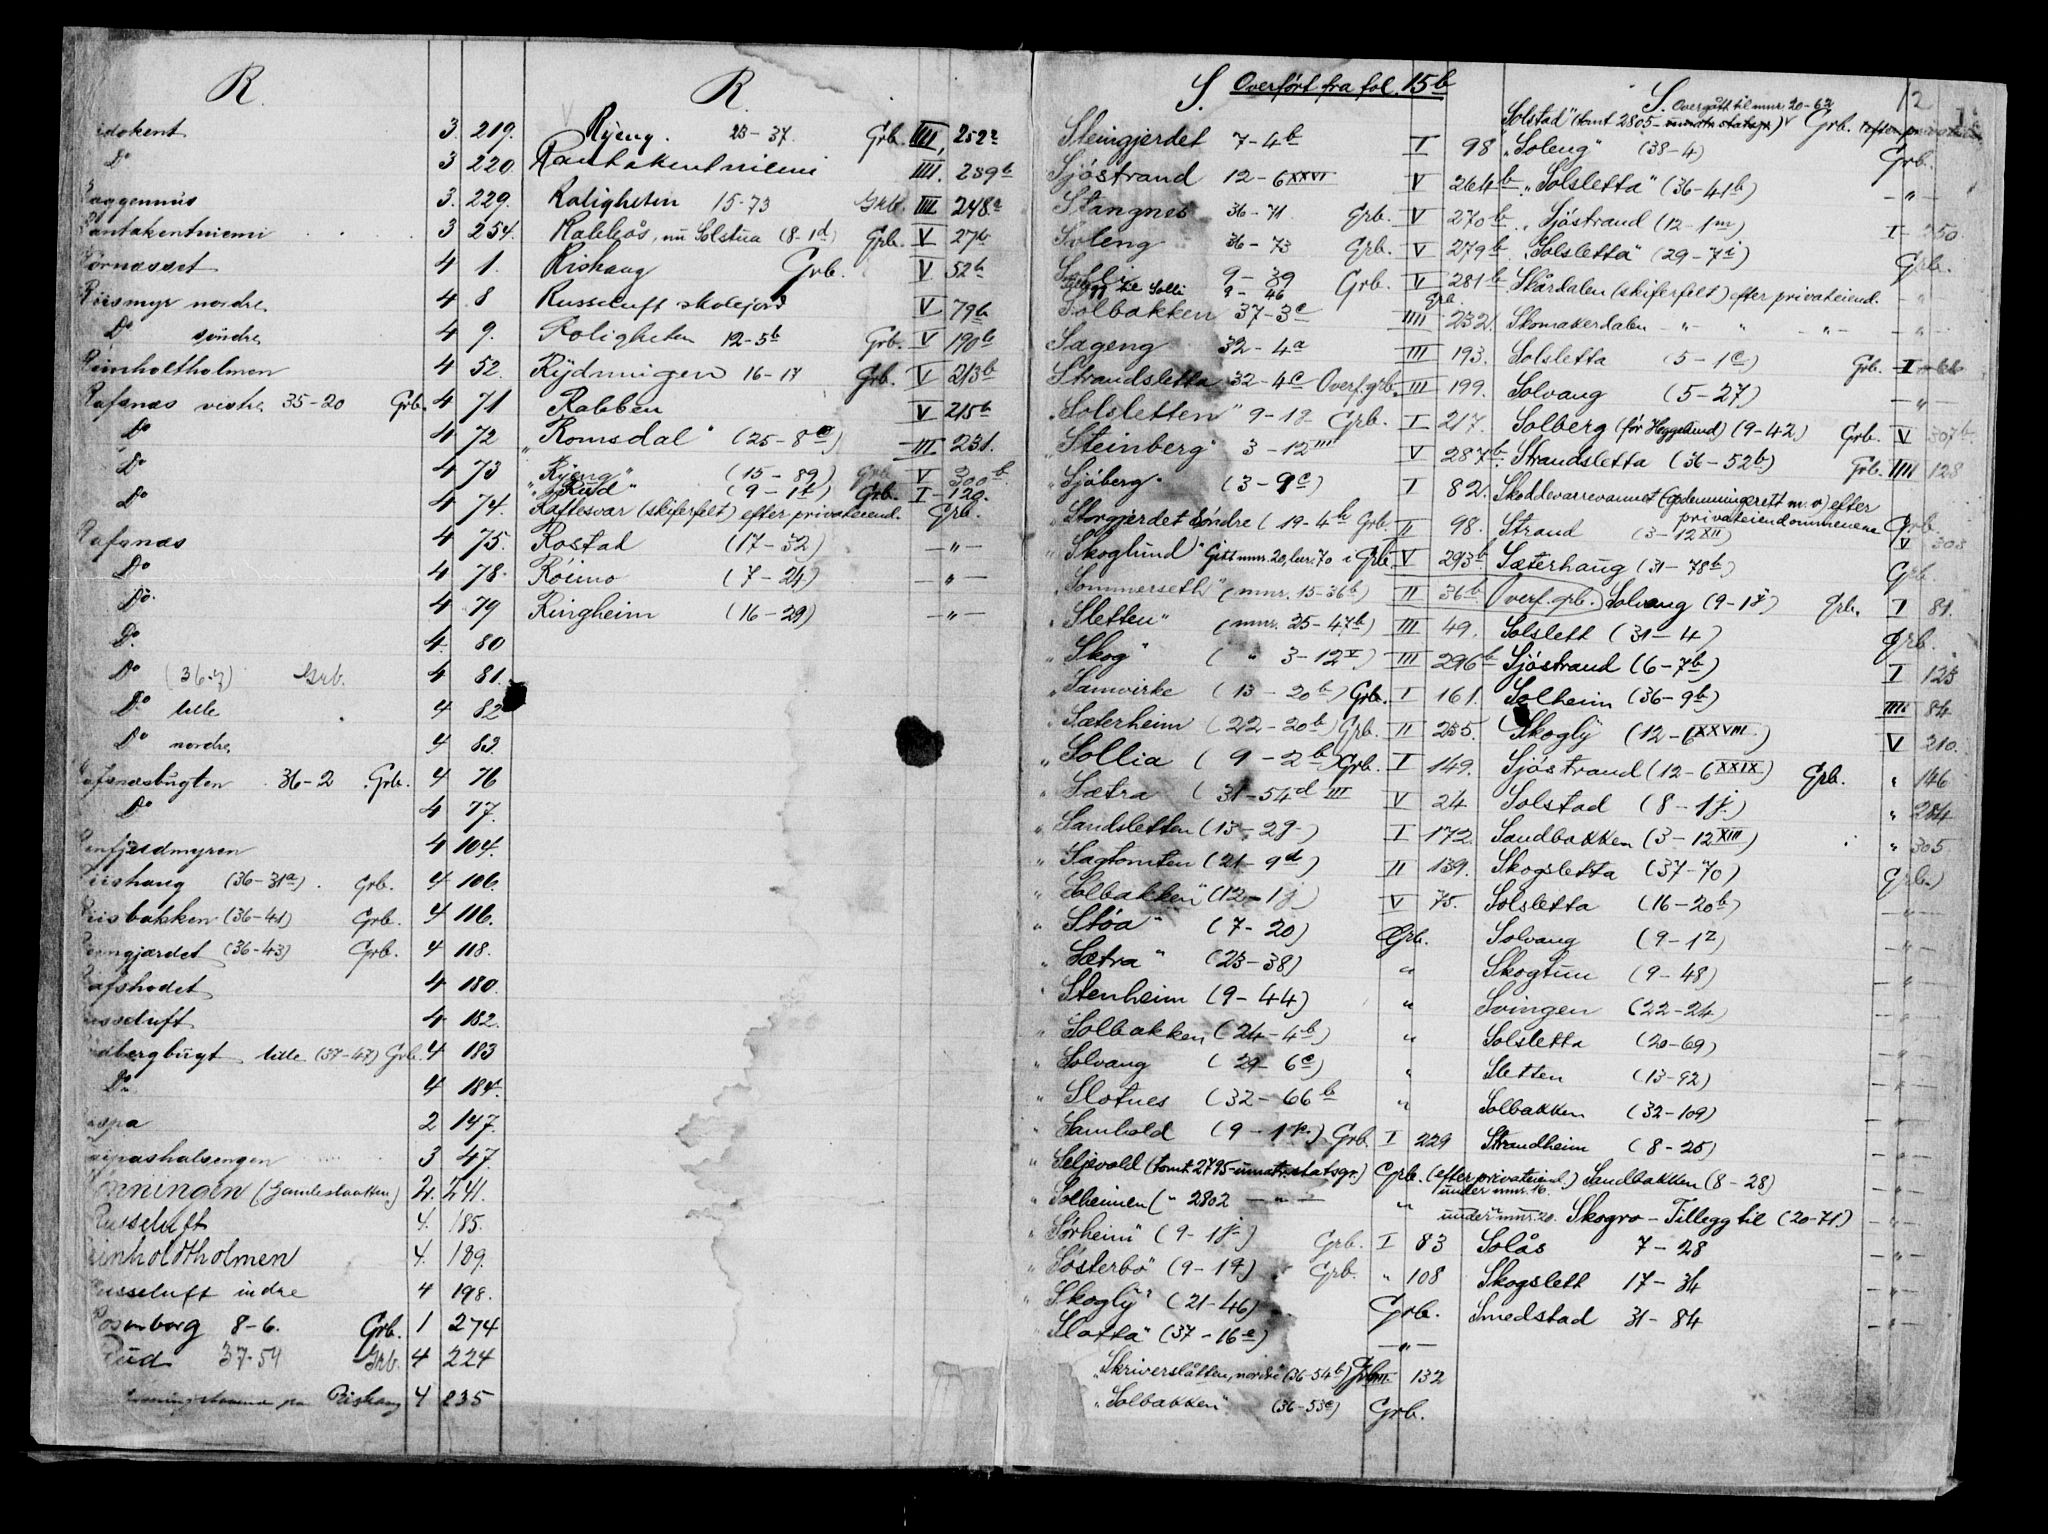 R.
idokent 3 219.
Do 3 220
aggenmus 3. 229.
Rantakentniemi 3 254.
Rörnesset 4 1.
Riismyr nordre 4 8
Do söndre 4 9.
Reinholtholmen 4 52.
Rafsnæs vestre 35-20 Grb. 4 71
Do 4 72
Do 4 73
Do 4 74.
Rafsnæs 4 75.
Do 4 78.
Do. 4 79
Do. 4. 80
Do (36-7) Grb. 4 81.
Do lille 4 82
Do nordre 4 83.
Rafsnæsbugten 36-2 Grb. 4 76
Do 4 77.
enfjeldmyren 4 104.
Riishaug (36-31a) Grb. 4 106.
Riisbakken (36-41) Grb. 4 116.
gjærdet (36-43) Grb. 4 118.
afshodet 4 180.
usseluft 4 182.
dbergbugt lille (37-47) Grb. 4 183
Do 4 184.
aspa 2 147.
aipashalsengen 3 47.
Rønningen (Gamleslaatten) 2. 241.
Russeluft 4. 185.
einholdtholmen 4. 189.
usseluft indre 4 198.
Rosenborg 8-6. Grb. 1 274
Rud 37-54 Grb. 4 224
Rishaug 4 235
R.
Ryeng. 23-37. Grb. IIII, 252a
Rantakentniemi IIII. 239b
Roligheten 15-73 Grb. IIII 248a
Rakkeås, nu Solstua (8-1d) Grb. V 27b
Rishaug Grb. V. 52b
Russeluft skolejord V 79b
Roligheten 12-5b Grb. V 190b
Rydningen 16-17 Grb. V 213b
Rabben V 215b
„Romsdal" (25-8e) III 231.
„Ryeng" (15-89) Grb V 300b
„Rud" (9-1t) Grb. I - 120.
Raftesvar (skiferfelt) efter privateiend. Grb.
Rostad (17-32) -„-
Röimo (7-24) -„-
Ringheim (16-29) -„-
S. Overført fra fol. 15b
Steingjerdet 7-4b I 98
Sjöstrand 12-6XXVI V 264b
Stangnes 36-71 Grb. V 270b
Soleng 36-73 Grb. V 279b
Solli 9-39 Grb. V 281b
Tillegg til Solli 9-46 Grb.
Solbakken 37-3c IIII 232.
Sageng 32-4a III 193.
Strandsletta 32-4c Overf. grb. III 199.
„Solsletten" 9-1g Grb. I 217.
„Steinberg" 3-12III V 287b
„Sjöberg" (3-9c) I 82.
„Storgjerdet Söndre (19-4b Grb. II 98.
„Skoglund" Gitt mnr. 20, bnr. 70 i Grb. V 293b
„Sommerseth" (mnr. 15-36b) II 36b (Overf. grb.)
„Sletten" (mnr. 25-47b) III 49.
„Skog" („ 3-12V) III 296b
„Samvirke (13-20b) Grb. I 161.
„Sæterheim (22-20b) Grb. II 235.
„Sollia (9-2b) Grb. I 149.
„Sætra (31-54d III V 24
„Sandsletten (13-2g) I 172.
„Sagtomten (21-9d) II 139.
„Solbakken" (12-1j) V 75.
„Støa" (7-20) Grb.
„Sætra" (23-38) „
„Stenheim (9-44) „
„Solbakken (24-4b) „
„Solvang (29-6c) „
„Slotnes (32-66b „
„Samhold (9-1p) Grb. I 229
„Seljevold (tomt 2795-umatr. statsgr.) Grb. (efter privateiend.) under mnr. 16.
„Solheimen („ 2802 -„- „ under mnr. 20.
„Sørheim" (9-1j) Grb. I 83
„Sösterbo" (9-1q) Grb. „ 108
„Skogly" (21-46) Grb.
„Slatta" (37-16e) -„-
„Skriverslåtten, nordre" (36-54b) Grb. III. 132
„Solbakken" (36-53c) Grb.
S. 12
Overgått til mnr. 20-62
Solstad" (tomt 2805-umatr. statsgr.) Grb.
„Soleng" (38-4) Grb.
„Solsletta" (36-41b) -„-
„Sjöstrand (12-1m) I 250.
„Solsletta" (29-7i) Grb.
Skårdalen (skiferfelt) efter privateiend. -„-
Skomakerdalen -„- „ -„- -„-
Solsletta (5-1c) Grb. I 66
Solvang (5-27) -„-
Solberg (før Heggelund) (9-42) Grb. V 307b
Strandsletta (36-52b) Grb. IIII 128
Skoddevarrevannet (opdemningsrett m.v) efter privateiendommene Grb.
Strand (3-12XII) V 303
Sæterhaug (31-78b) Grb.
Solvang (9-1j) Grb. I 81.
Solslett (31-4) Grb.
Sjöstrand (6-7b) I 123
Solheim (36-9b) IIII 84
Skogly (12-6XXVIII) V 210.
Sjöstrand (12-6XXIX) Grb. „ 146
Solstad (8-1j) „ 284
Sandbakken (3-12XIII) „ 305
Skogsletta (37-70) Grb.
Solsletta (16-20b) -„-
Solvang (9-1z) -„-
Skogtun (9-48) -„-
Svingen (22-24) -„-
Solsletta (20-69) -„-
Sletten (13-92) -„-
Solbakken (32-109) -„-
Strandheim (8-25) -„-
Sandbakken (8-28) -„-
Skogro - Tillegg til (20-71) -„-
Solås 7-28 -„-
Skogslett 17-34 -„-
Smedstad 31-84 -„-